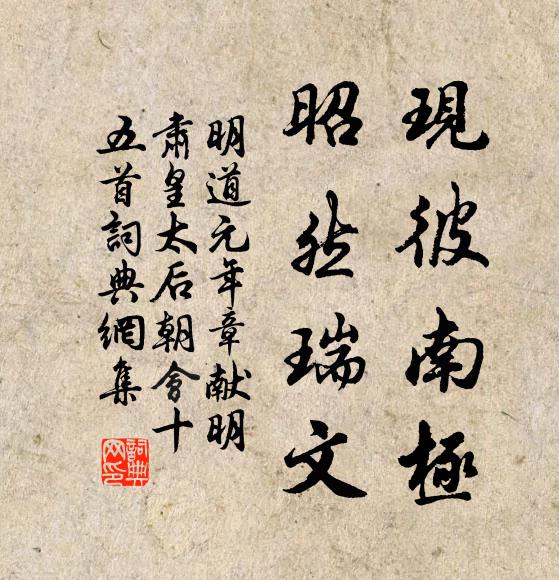 現彼南極
昭然瑞文
明道元年章献明
肅皇太后朝會十
五首詞典網集
詞典网印